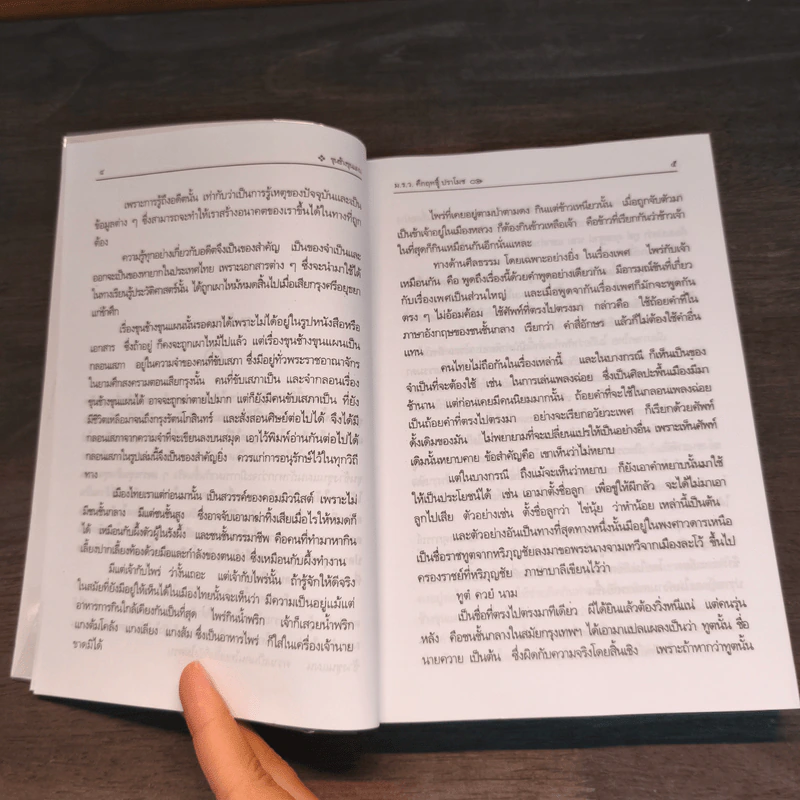 ๔ ❖ ขุนช้างขุนแผน
เพราะการรู้ถึงอดีตนั้น เท่ากับว่าเป็นการรู้เหตุของปัจจุบันและเป็น
ข้อมูลต่าง ๆ ซึ่งสามารถจะทำให้เราสร้างอนาคตของเราขึ้นได้ในทางที่ถูก
ต้อง
ความรู้ทุกอย่างเกี่ยวกับอดีตจึงเป็นของสำคัญ เป็นของจำเป็นและ
ออกจะเป็นของหายากในประเทศไทย เพราะเอกสารต่าง ๆ ซึ่งจะนำมาใช้ได้
ในทางเรียนรู้ประวัติศาสตร์นั้น ได้ถูกเผาไหม้หมดสิ้นไปเมื่อเสียกรุงศรีอยุธยา
แก่ข้าศึก
เรื่องขุนช้างขุนแผนนั้นรอดมาได้เพราะไม่ได้อยู่ในรูปหนังสือหรือ
เอกสาร ซึ่งถ้าอยู่ ก็คงจะถูกเผาไหม้ไปแล้ว แต่เรื่องขุนช้างขุนแผนเป็น
กลอนเสภา อยู่ในความจำของคนที่ขับเสภา ซึ่งมีอยู่ทั่วพระราชอาณาจักร
ในยามศึกสงครามตอนเสียกรุงนั้น คนที่ขับเสภาเป็น และจำกลอนเรื่อง
ขุนช้างขุนแผนได้ อาจจะถูกฆ่าตายไปมาก แต่ก็ยังมีคนขับเสภาเป็น ที่ยัง
มีชีวิตเหลือมาจนถึงกรุงรัตนโกสินทร์ และสั่งสอนศิษย์ต่อไปได้ จึงได้มี
กลอนเสภาจากความจำที่จะเขียนลงบนสมุด เอาไว้พิมพ์อ่านกันต่อไปได้
กลอนเสภาในรูปเล่มนี้จึงเป็นของสำคัญยิ่ง ควรแก่การอนุรักษ์ไว้ในทุกวิถี
ทาง
เมืองไทยเราแต่ก่อนมานั้น เป็นสวรรค์ของคอมมิวนิสต์ เพราะไม่
มีชนชั้นกลาง มีแต่ชนชั้นสูง ซึ่งอาจจับเอามาฆ่าทิ้งเสียเมื่อไรให้หมดก็
ได้ เหมือนกับผึ้งตัวผู้ในรังผึ้ง และชนชั้นกรรมาชีพ คือคนที่ทำมาหากิน
เลี้ยงปากเลี้ยงท้องด้วยมือและกำลังของตนเอง ซึ่งเหมือนกับผึ้งทำงาน
มีแต่เจ้ากับไพร่ ว่างั้นเถอะ แต่เจ้ากับไพร่นั้น ถ้ารู้จักให้ดีจริง
ในสมัยที่ยังมีอยู่ให้เห็นได้ในเมืองไทยนั้นจะเห็นว่า มีความเป็นอยู่แม้แต่
อาหารการกินใกล้เคียงกันเป็นที่สุด ไพร่กินน้ำพริก เจ้าก็เสวยน้ำพริก
แกงต้มโคล้ง แกงเลียง แกงส้ม ซึ่งเป็นอาหารไพร่ ก็ใส่ในเครื่องเจ้านาย
ขาดมิได้
ม.ร.ว. คึกฤทธิ์ ปราโมช ๕
ไพร่ที่เคยอยู่ตามป่าตามดง กินแต่ข้าวเหนียวนั้น เมื่อถูกจับตัวมา
เป็นข้าเจ้าอยู่ในเมืองหลวง ก็ต้องกินข้าวเหลือเจ้า คือข้าวที่เรียกกันว่าข้าวเจ้า
ในที่สุดก็กินเหมือนกันอีกนั่นแหละ
ทางด้านศีลธรรม โดยเฉพาะอย่างยิ่ง ในเรื่องเพศ ไพร่กับเจ้า
เหมือนกัน คือ พูดถึงเรื่องนี้ด้วยคำพูดอย่างเดียวกัน มีอารมณ์ขันที่เกี่ยว
กับเรื่องเพศเป็นส่วนใหญ่ และเมื่อพูดจากันเรื่องเพศก็มักจะพูดกัน
ตรง ๆ ไม่อ้อมค้อม ใช้ศัพท์ที่ตรงไปตรงมา กล่าวคือ ใช้ถ้อยคำที่ใน
ภาษาอังกฤษของชนชั้นกลาง เรียกว่า คำสี่อักษร แล้วก็ไม่ต้องใช้คำอื่น
แทน
คนไทยไม่ถือกันในเรื่องเหล่านี้ และในบางกรณี ก็เห็นเป็นของ
จำเป็นที่จะต้องใช้ เช่น ในการเล่นเพลงฉ่อย ซึ่งเป็นศิลปะพื้นเมืองมีมา
ช้านาน แต่ก่อนเคยมีคนนิยมมากนั้น ถ้อยคำที่จะใช้ในกลอนเพลงฉ่อย
เป็นถ้อยคำที่ตรงไปตรงมา อย่างจะเรียกอวัยวะเพศ ก็เรียกด้วยศัพท์
ดั้งเดิมของมัน ไม่พยายามที่จะเปลี่ยนแปรให้เป็นอย่างอื่น เพราะเห็นศัพท์
เดิมนั้นหยาบคาย ข้อสำคัญคือ เขาเห็นว่าไม่หยาบ
แต่ในบางกรณี ถึงแม้จะเห็นว่าหยาบ ก็ยังเอาคำหยาบนั้นมาใช้
ให้เป็นประโยชน์ได้ เช่น เอามาตั้งชื่อลูก เพื่อขู่ให้ผีกลัว จะได้ไม่มาเอา
ลูกไปเสีย ตัวอย่างเช่น ตั้งชื่อลูกว่า ไข่นุ้ย ว่าหำน้อย เหล่านี้เป็นต้น
และตัวอย่างอันเป็นทางที่สุดทางหนึ่งนั้นมีอยู่ในพงศาวดารเหนือ
เป็นชื่อราชทูตจากหริภุญชัยลงมาขอพระนางจามเทวีจากเมืองละโว้ ขึ้นไป
ครองราชย์ที่หริภุญชัย ภาษาบาลีเขียนไว้ว่า
ทูตํ ควย นาม
เป็นชื่อที่ตรงไปตรงมาทีเดียว มิได้ยินแล้วต้องวิ่งหนีณ่ แต่คนรุ่น
หลัง คือชนชั้นกลางในสมัยกรุงเทพฯ ได้เอามาแปลแผลงเป็นว่า ทูตนั้น ชื่อ
นายควาย เป็นต้น ซึ่งผิดกับความจริงโดยสิ้นเชิง เพราะถ้าหากว่าทูตนั้น